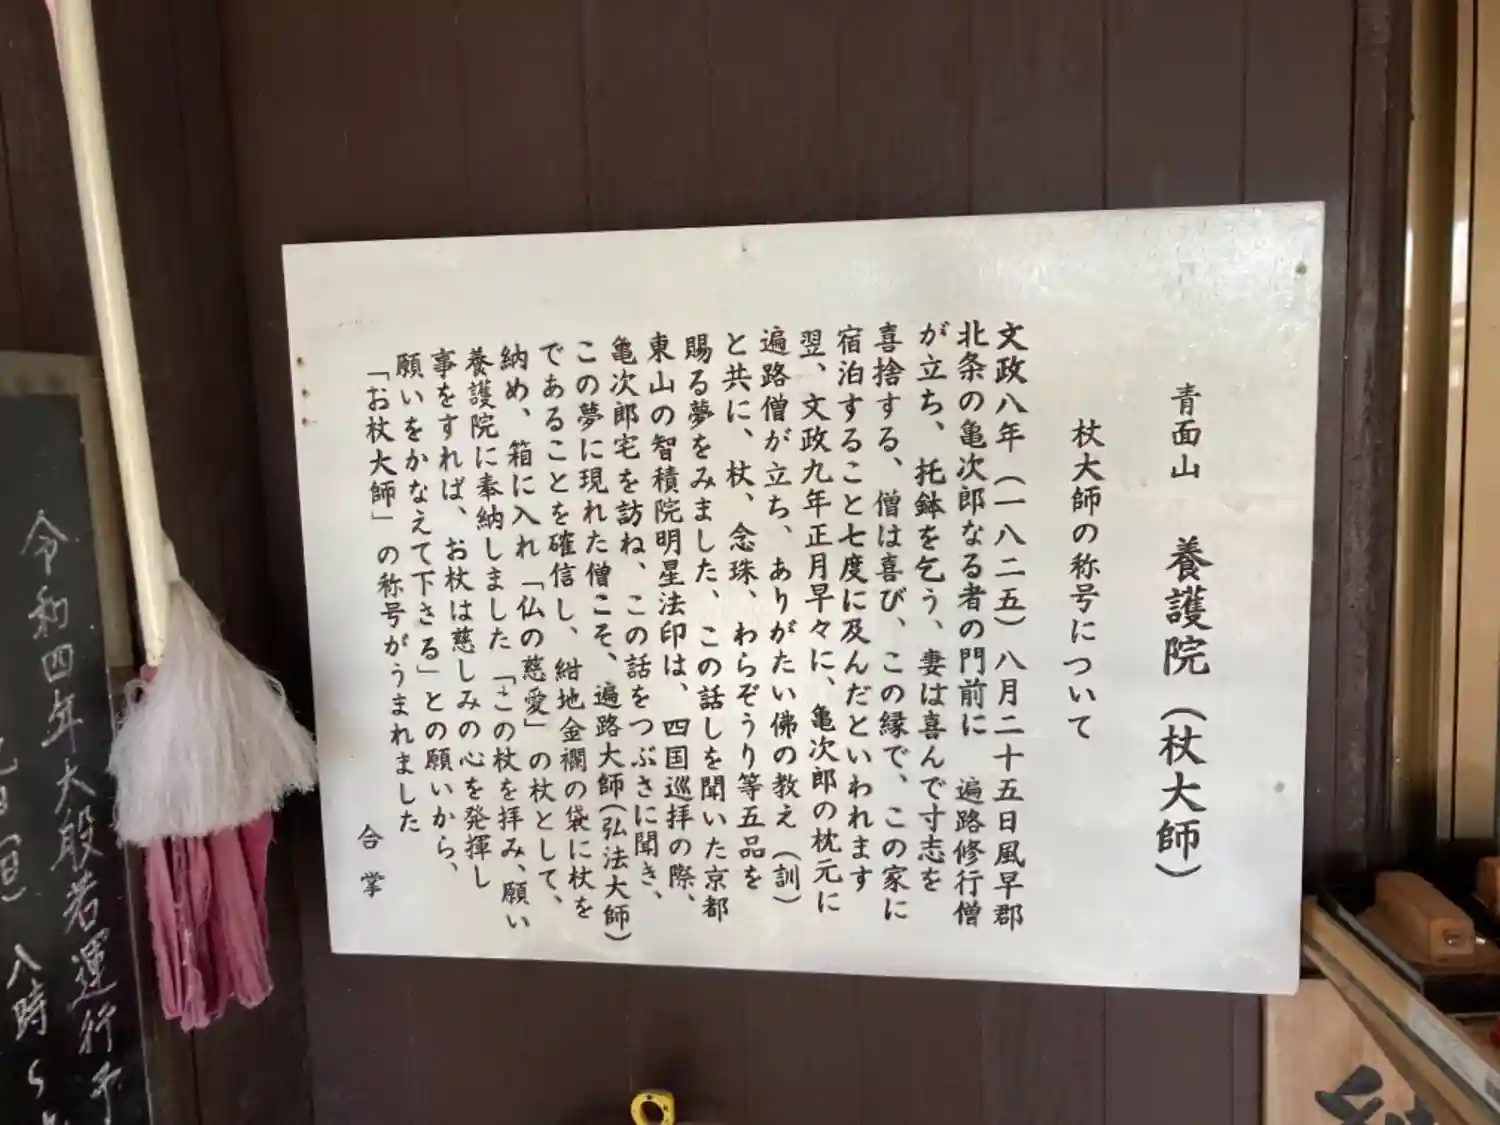 青面山 養護院（杖大師）
杖大師の称号について
文政八年（一八二五）八月二十五日風早郡
北条の亀次郎なる者の門前に 遍路修行僧
が立ち、托鉢を乞う、妻は喜んで寸志を
喜捨する、僧は喜び、この縁で、この家に
宿泊すること七度に及んだといわれます
翌、文政九年正月早々に、亀次郎の枕元に
遍路僧が立ち、ありがたい佛の教え（訓）
と共に、杖、念珠、わらぞうり等五品を
賜る夢をみました、この話しを聞いた京都
東山の智積院明星法印は、四国巡拝の際、
亀次郎宅を訪ね、この話をつぶさに聞き、
この夢に現れた僧こそ、遍路大師（弘法大師）
であることを確信し、紺地金襴の袋に杖を
納め、箱に入れ「仏の慈愛」の杖として、
養護院に奉納しました「この杖を拝み、願い
事をすれば、お杖は慈しみの心を発揮し
願いをかなえて下さる」との願いから、
「お杖大師」の称号がうまれました
合掌
令和四年大般若運行予
八時〜